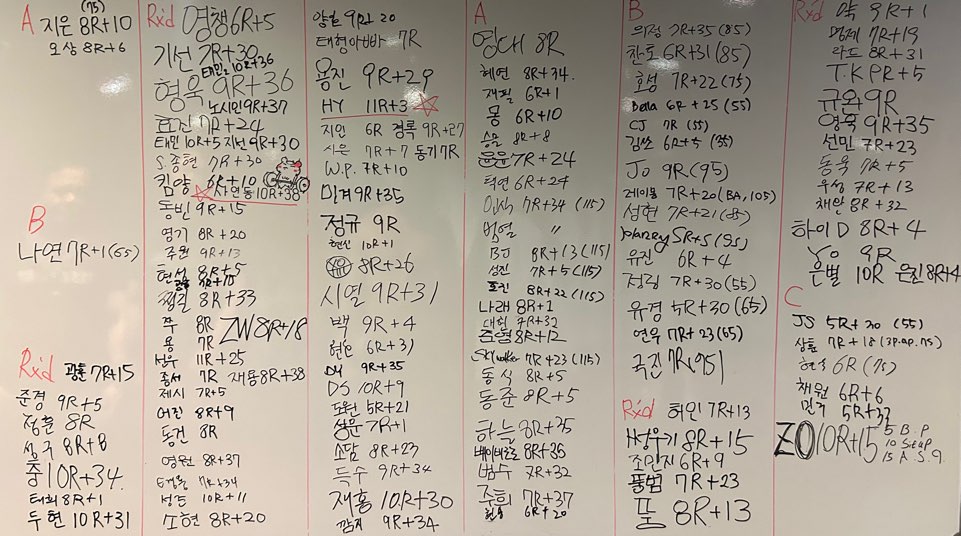 A 지은 8R+10 (75)
오상 8R+6
B
나연 7R+1(65)
Rx'd 광훈 7R+15
준경 9R+5
정훈 8R
성구 8R+8
중 10R+34
태희 8R+1
두현 10R+31
Rx'd 영챙 6R+5
기선 7R+30
태민2 10R+36
형욱 9R+36
노시민 9R+37
효진 7R+24
태민 10R+5 지선 9R+30
S.종현 7R+30
킴양 6R+10
사연동 10R+38
동빈 9R+15
영기 8R+20
주원 9R+13
현섭 8R+5
찡길 8R+33
주 8R
ZW 8R+18
용 7R
성우 11R+25
홍서 7R 재용 8R+38
제시 7R+5
어진 8R+9
동건 8R
영원 8R+37
7R+34
성든 10R+11
소현 8R+20
양호 9R+20
태현아빠 7R
용진 9R+29
HY 11R+3
지인 6R 경록 9R+27
시은 7R+7 동기 7R
W.P. 7R+10
미겨 9R+35
정규 9R
현신 10R+1
8R+26
시열 9R+31
백 9R+4
현은 6R+31
DY 9R+35
DS 10R+9
도원 5R+21
상문 7R+1
소담 8R+23
득수 9R+34
재홍 10R+30
깜지 9R+34
A
영대 8R
혜연 8R+34
재필 6R+1
몽 6R+10
승윤 8R+8
윤윤 7R+24
덕연 6R+24
인식 7R+34 (115)
범열 〃
BJ 8R+13 (115)
성진 7R+5 (115)
효진 8R+22 (115)
나래 8R+1
대현 7R+32
준영 8R+12
SKywalker 7R+23 (115)
동식 8R+5
동준 8R+5
하늘 8R+35
베이비로로 8R+36
범수 7R+32
주희 7R+37
현송 6R+20
B
의정 7R+35 (85)
찬토 6R+31 (85)
호성 7R+22 (75)
Bella 6R+25 (55)
CJ 7R (55)
김쌋 6R+5 (55)
Jo 9R (95)
레이몯 7R+20 (BA, 105)
성현 7R+21 (85)
Johnny 5R+5 (95)
유진 6R+4
정림 7R+30 (55)
유경 5R+30 (65)
연우 7R+23 (65)
국진 7R (95)
Rx'd 허인 7R+13
H정우기 8R+15
조민지 6R+9
품범 7R+23
푸 8R+13
Rx'd 약 9R+1
명제 7R+19
라드 8R+31
T.K PR+5
규완 9R
영욱 9R+35
선민 7R+23
동욱 7R+5
우성 7R+13
채완 8R+32
하이D 8R+4
Yo 9R
은별 10R 은진 8R+4
C
JS 5R+30 (55)
상률 7R+18
현주 6R (75)
채원 6R+6
민기 5R+33
ZO 10R+15
5 B.P
10 Situp
15 A.S.Q.